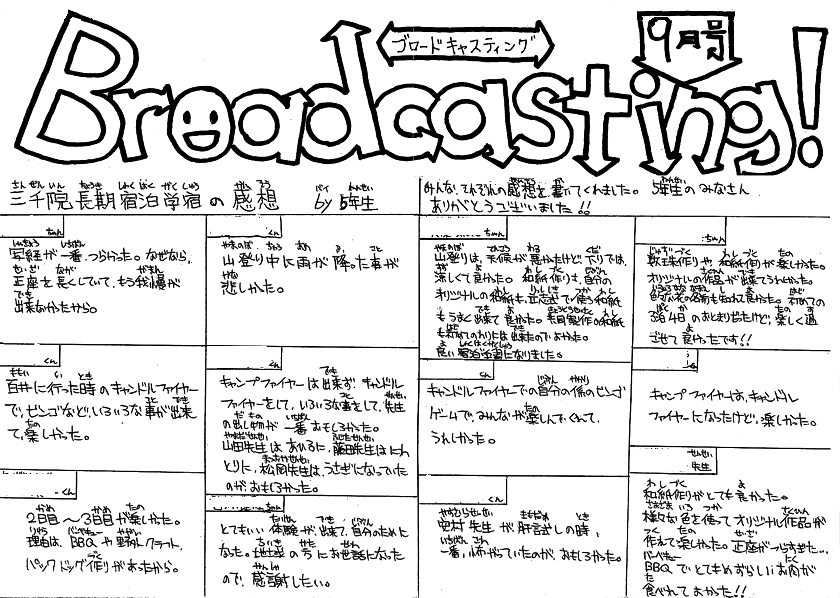 ブロードキャスティング
9月号
Broadcasting!
三千院長期宿泊学習の感想 by 5年生
みんな、それぞれの感想を書いてくれました。5年生のみなさん
ありがとうございました!!
ちゃん
写経が一番、つらかった。なぜなら、
正座を長くしていて、もう我慢が
出来なかったから。
山登り中に雨が降った事が
悲しかった。
山登りは、天候が悪かったけど、下りでは、
涼しくて良かった。和紙作りも、自分の
オリジナルの和紙も、
もうまく出来て良かった。共同製作の和紙
も初めてのわりには出来たのでよかった。
良い宿泊学習になりました。
ちゃん
数珠作りや和紙作りが楽しかった。
オリジナルの作品が出来てうれしかった。
色々な花の名前も知れて良かった。初めての
3泊4日のおとまりだったけど、楽しく過
ごせて良かったです!!
くん
百井に行った時のキャンドルファイヤー
で、ビンゴなど、いろいろな事が出来
て、楽しかった。
くん
キャンプファイヤーは出来ず、キャンドル
ファイヤーをして、いろいろな事をして、先生
の出し物が一番おもしろかった。
山田先生はあひるに、藤田先生はにわ
とりに、松岡先生は、うさぎになっていた
のがおもしろかった。
くん
キャンドルファイヤーでの自分の係のビンゴ
ゲームで、みんなが楽しんでくれて、
うれしかった。
くん
キャンプファイヤーは、キャンドル
ファイヤーになったけど、楽しかった。
くん
2日目〜3日目が楽しかった。
理由は、BBQや野外クラフト、
パックドッグ作りがあったから。
とてもいい体験が、出来て、自分のために
なった。地域の方にお世話になった
ので、感謝したい。
くん
安村先生が肝試しの時、
一番、怖がっていたのが、おもしろかった。
先生
和紙作りがとても良かった。
様々な色を使ってオリジナル作品が
作れて楽しかった。正座がつらすぎた…
BBQでとてもめずらしいお肉が
食べれてよかた!!